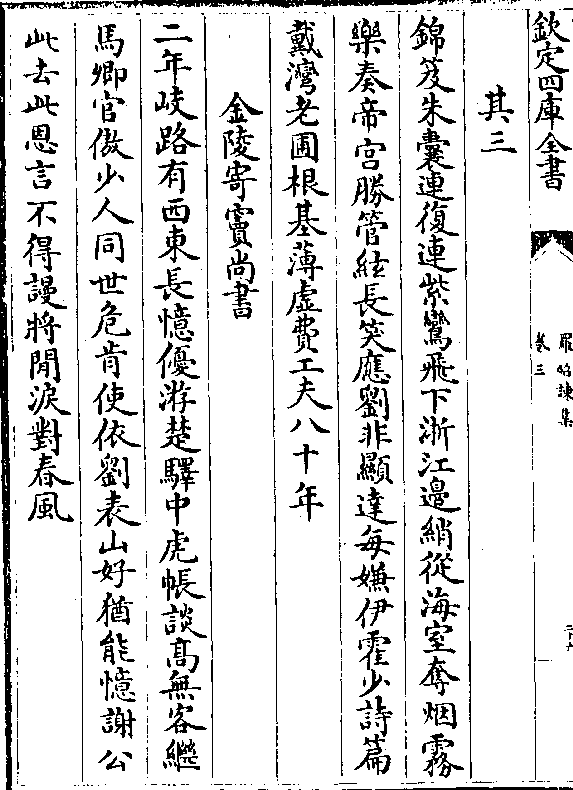 欽定四庫全書
羅昭諫集
卷三
其三
錦笈朱囊連復連紫鸞飛下浙江邊綃從海室奪烟霧
樂奏帝宫勝管絃長笑應劉非顯達每嫌伊霍少詩篇
戴灣老圃根基薄虚費工夫八十年
金陵寄竇尚書
二年岐路有西東長憶優游楚驛中虎帳談髙無客繼
馬卿官傲少人同世危肯使依劉表山好猶能憶謝公
此去此恩言不得謾將閒淚對春風